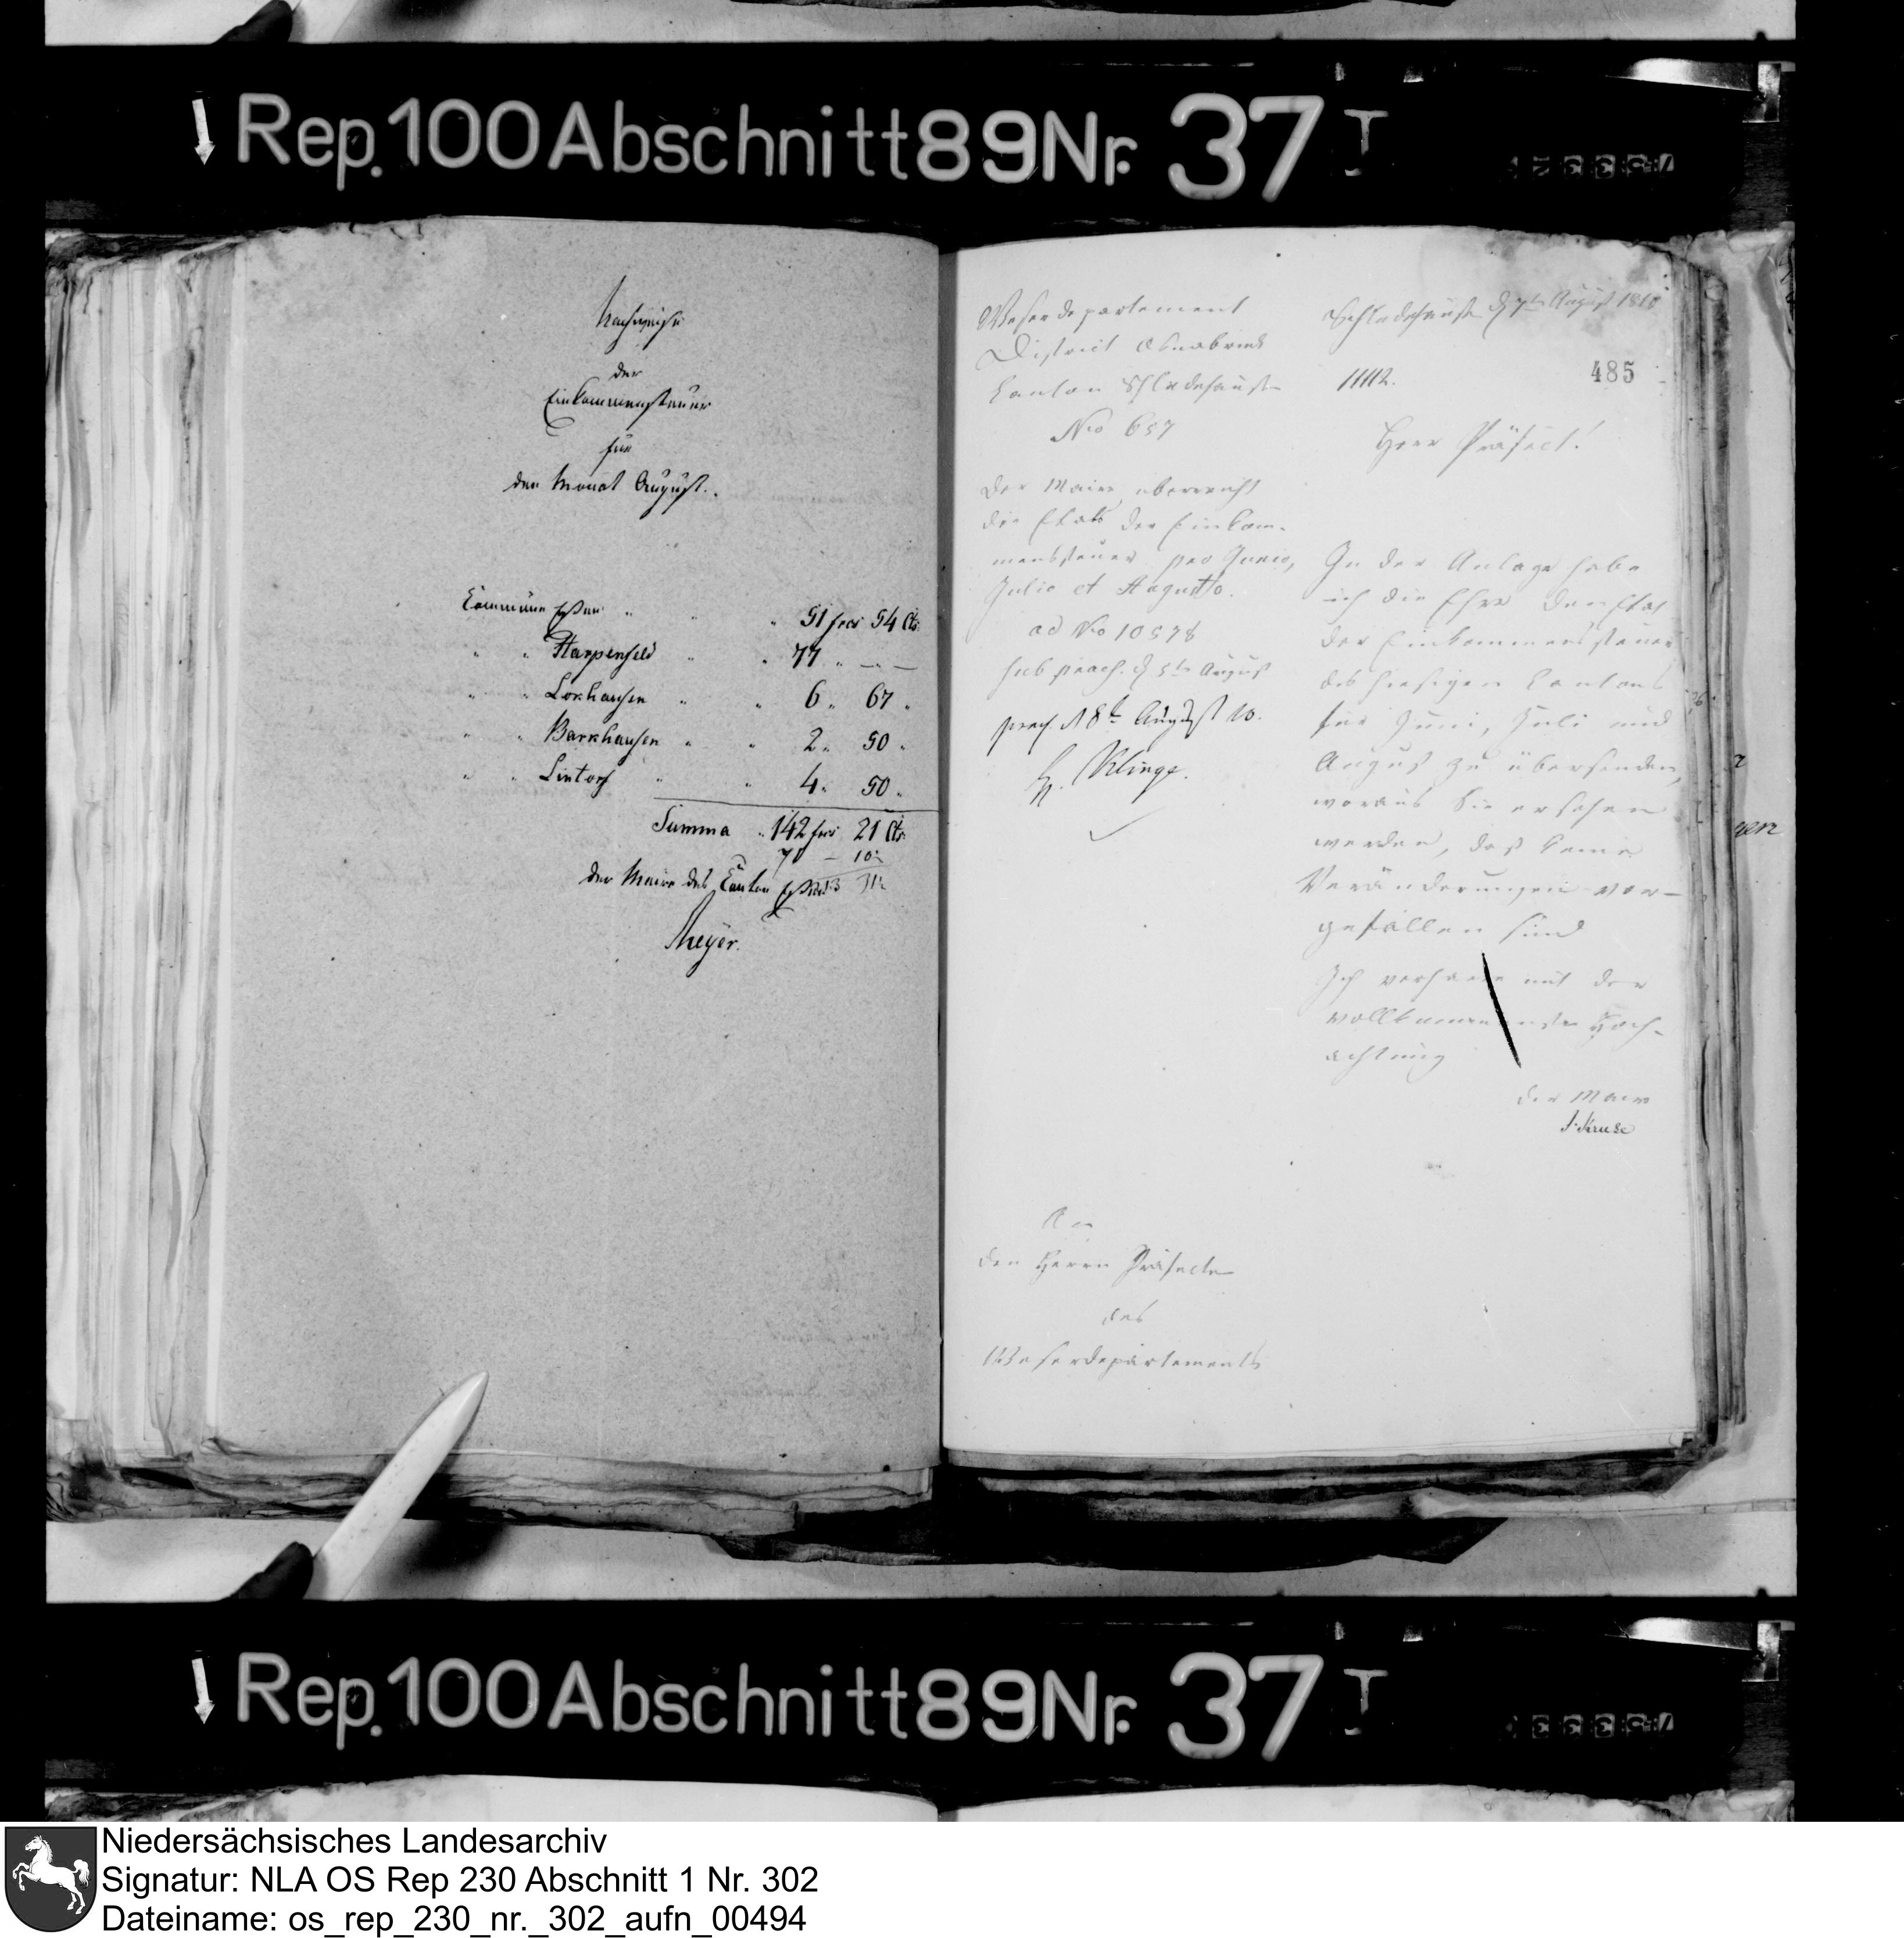 Rep. 100 Abschnitt 89 Nr. 37 I
Nachweise
der
Einkommensteuer
für
den Monat August.
Commune Essen " " " 51 frcs 54 Cts.
" " Harpenfeld " " 77 " — —
" " Lockhausen " " 6 " 67 "
" " Barkhausen " " 2 " 50 "
" " Lintorf " " 4 " 50 "
Summa " 142 frcs 21 Cts.
71 – 10½
31½
der Maire des Canton Essen
Meyer.
Weserdepartement
District Osnabrück
Canton Schledehausen
No 657
Der Maire überreicht
die Etats der Einkom-
menssteuer pro Junio,
Julio et Augusto.
ad No 10578
sub praes. d 5ten August
praes. d 8t August 10.
Klinge.
Schledehausen d 7ten August 1810
11112.
485
Herr Präfect!
In der Anlage habe
ich die Ehre den Etat
der Einkommenssteuer
des hiesigen Cantons
für Juni, Juli und
August zu übersenden,
woraus Sie ersehen
werden, daß keine
Veränderungen vor-
gefallen sind
Ich verharre mit der
vollkommensten Hoch-
achtung
Der Maire
J. Kruse
An
den Herrn Präfecten
des
Weserdepartements
Rep. 100 Abschnitt 89 Nr. 37 I
Niedersächsisches Landesarchiv
Signatur: NLA OS Rep 230 Abschnitt 1 Nr. 302
Dateiname: os_rep_230_nr._302_aufn_00494